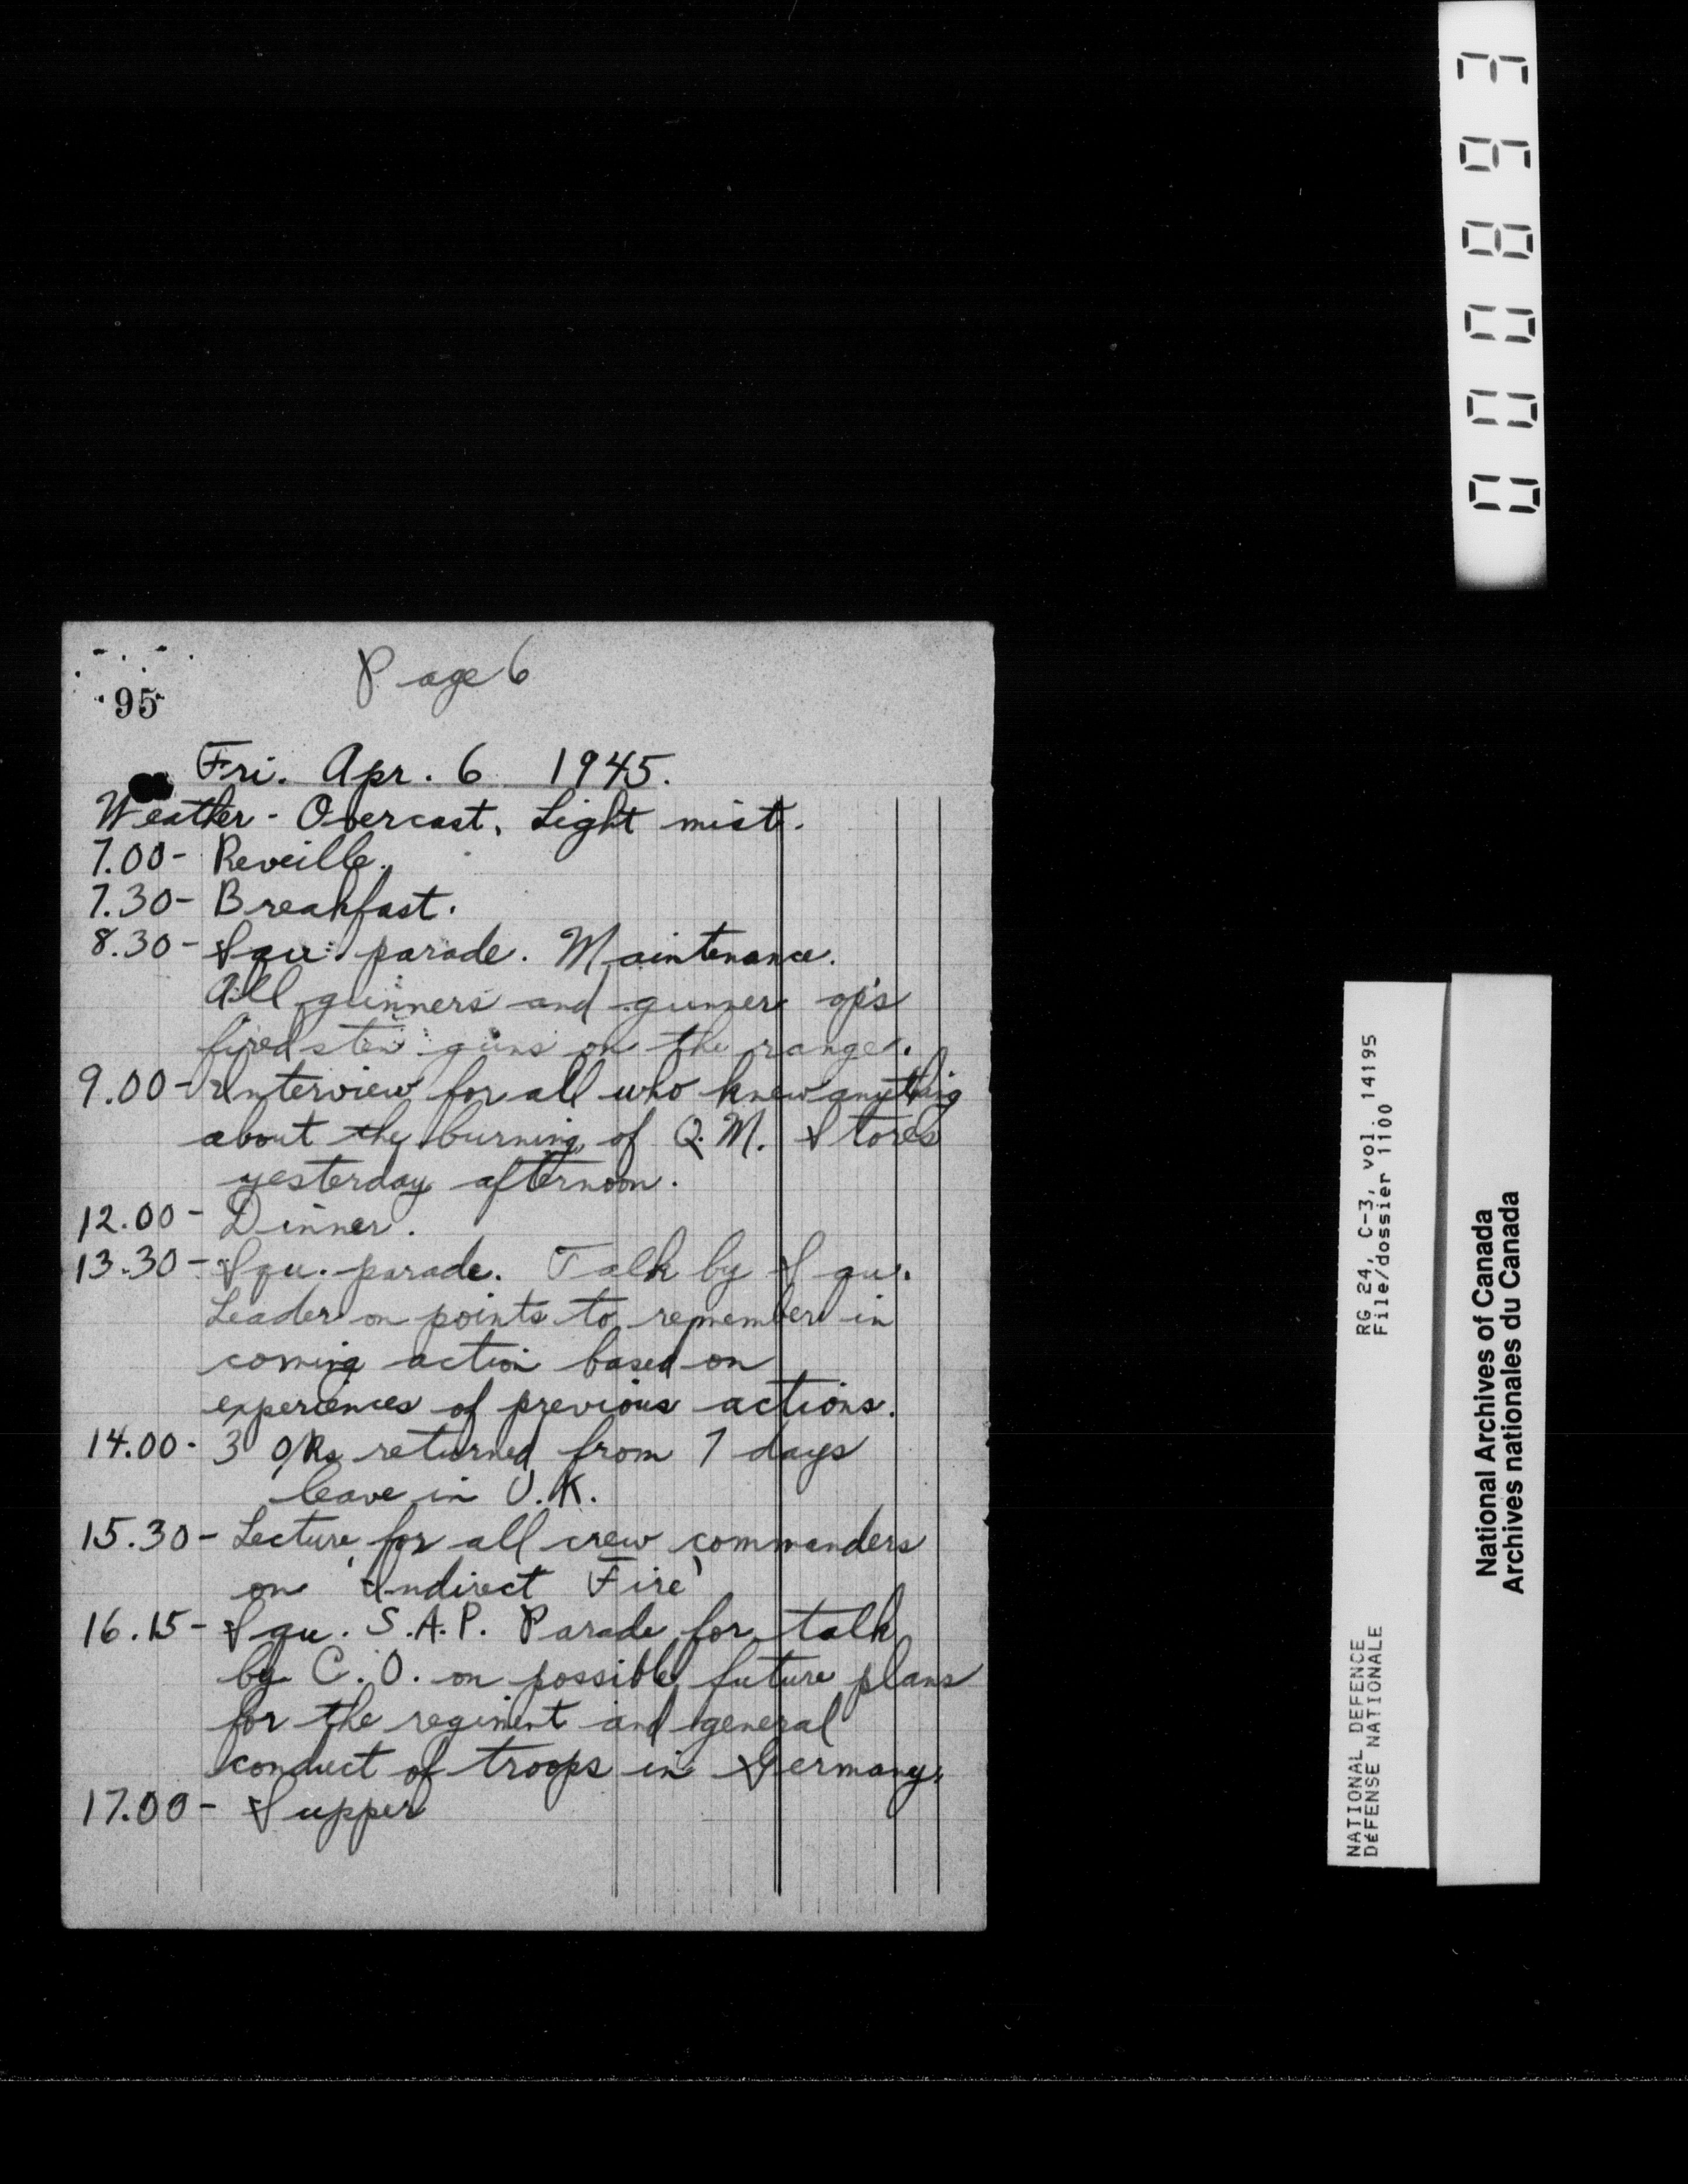 Page 6
95
Fri. Apr. 6 1945.
Weather - Overcast. Light mist.
7.00 - Reveille.
7.30 - Breakfast.
8.30 - Squ. parade. Maintenance.
All gunners and gunner op's
fired sten guns on the range.
9.00 - Interview for all who knew anything
about the burning of Q.M. Stores
yesterday afternoon.
12.00 - Dinner.
13.30 - Squ. parade. Talk by Squ.
Leader on points to remember in
coming action based on
experiences of previous actions.
14.00 - 3 O/Rs returned from 7 days
leave in U.K.
15.30 - Lecture for all crew commanders
on 'Indirect Fire'
16.15 - Squ. S.A.P. Parade for talk
by C.O. on possible future plans
for the regiment and general
conduct of troops in Germany.
17.00 - Supper
000893
RG 24, C-3, vol. 14195
File/dossier 1100
NATIONAL DEFENCE
DéFENSE NATIONALE
National Archives of Canada
Archives nationales du Canada